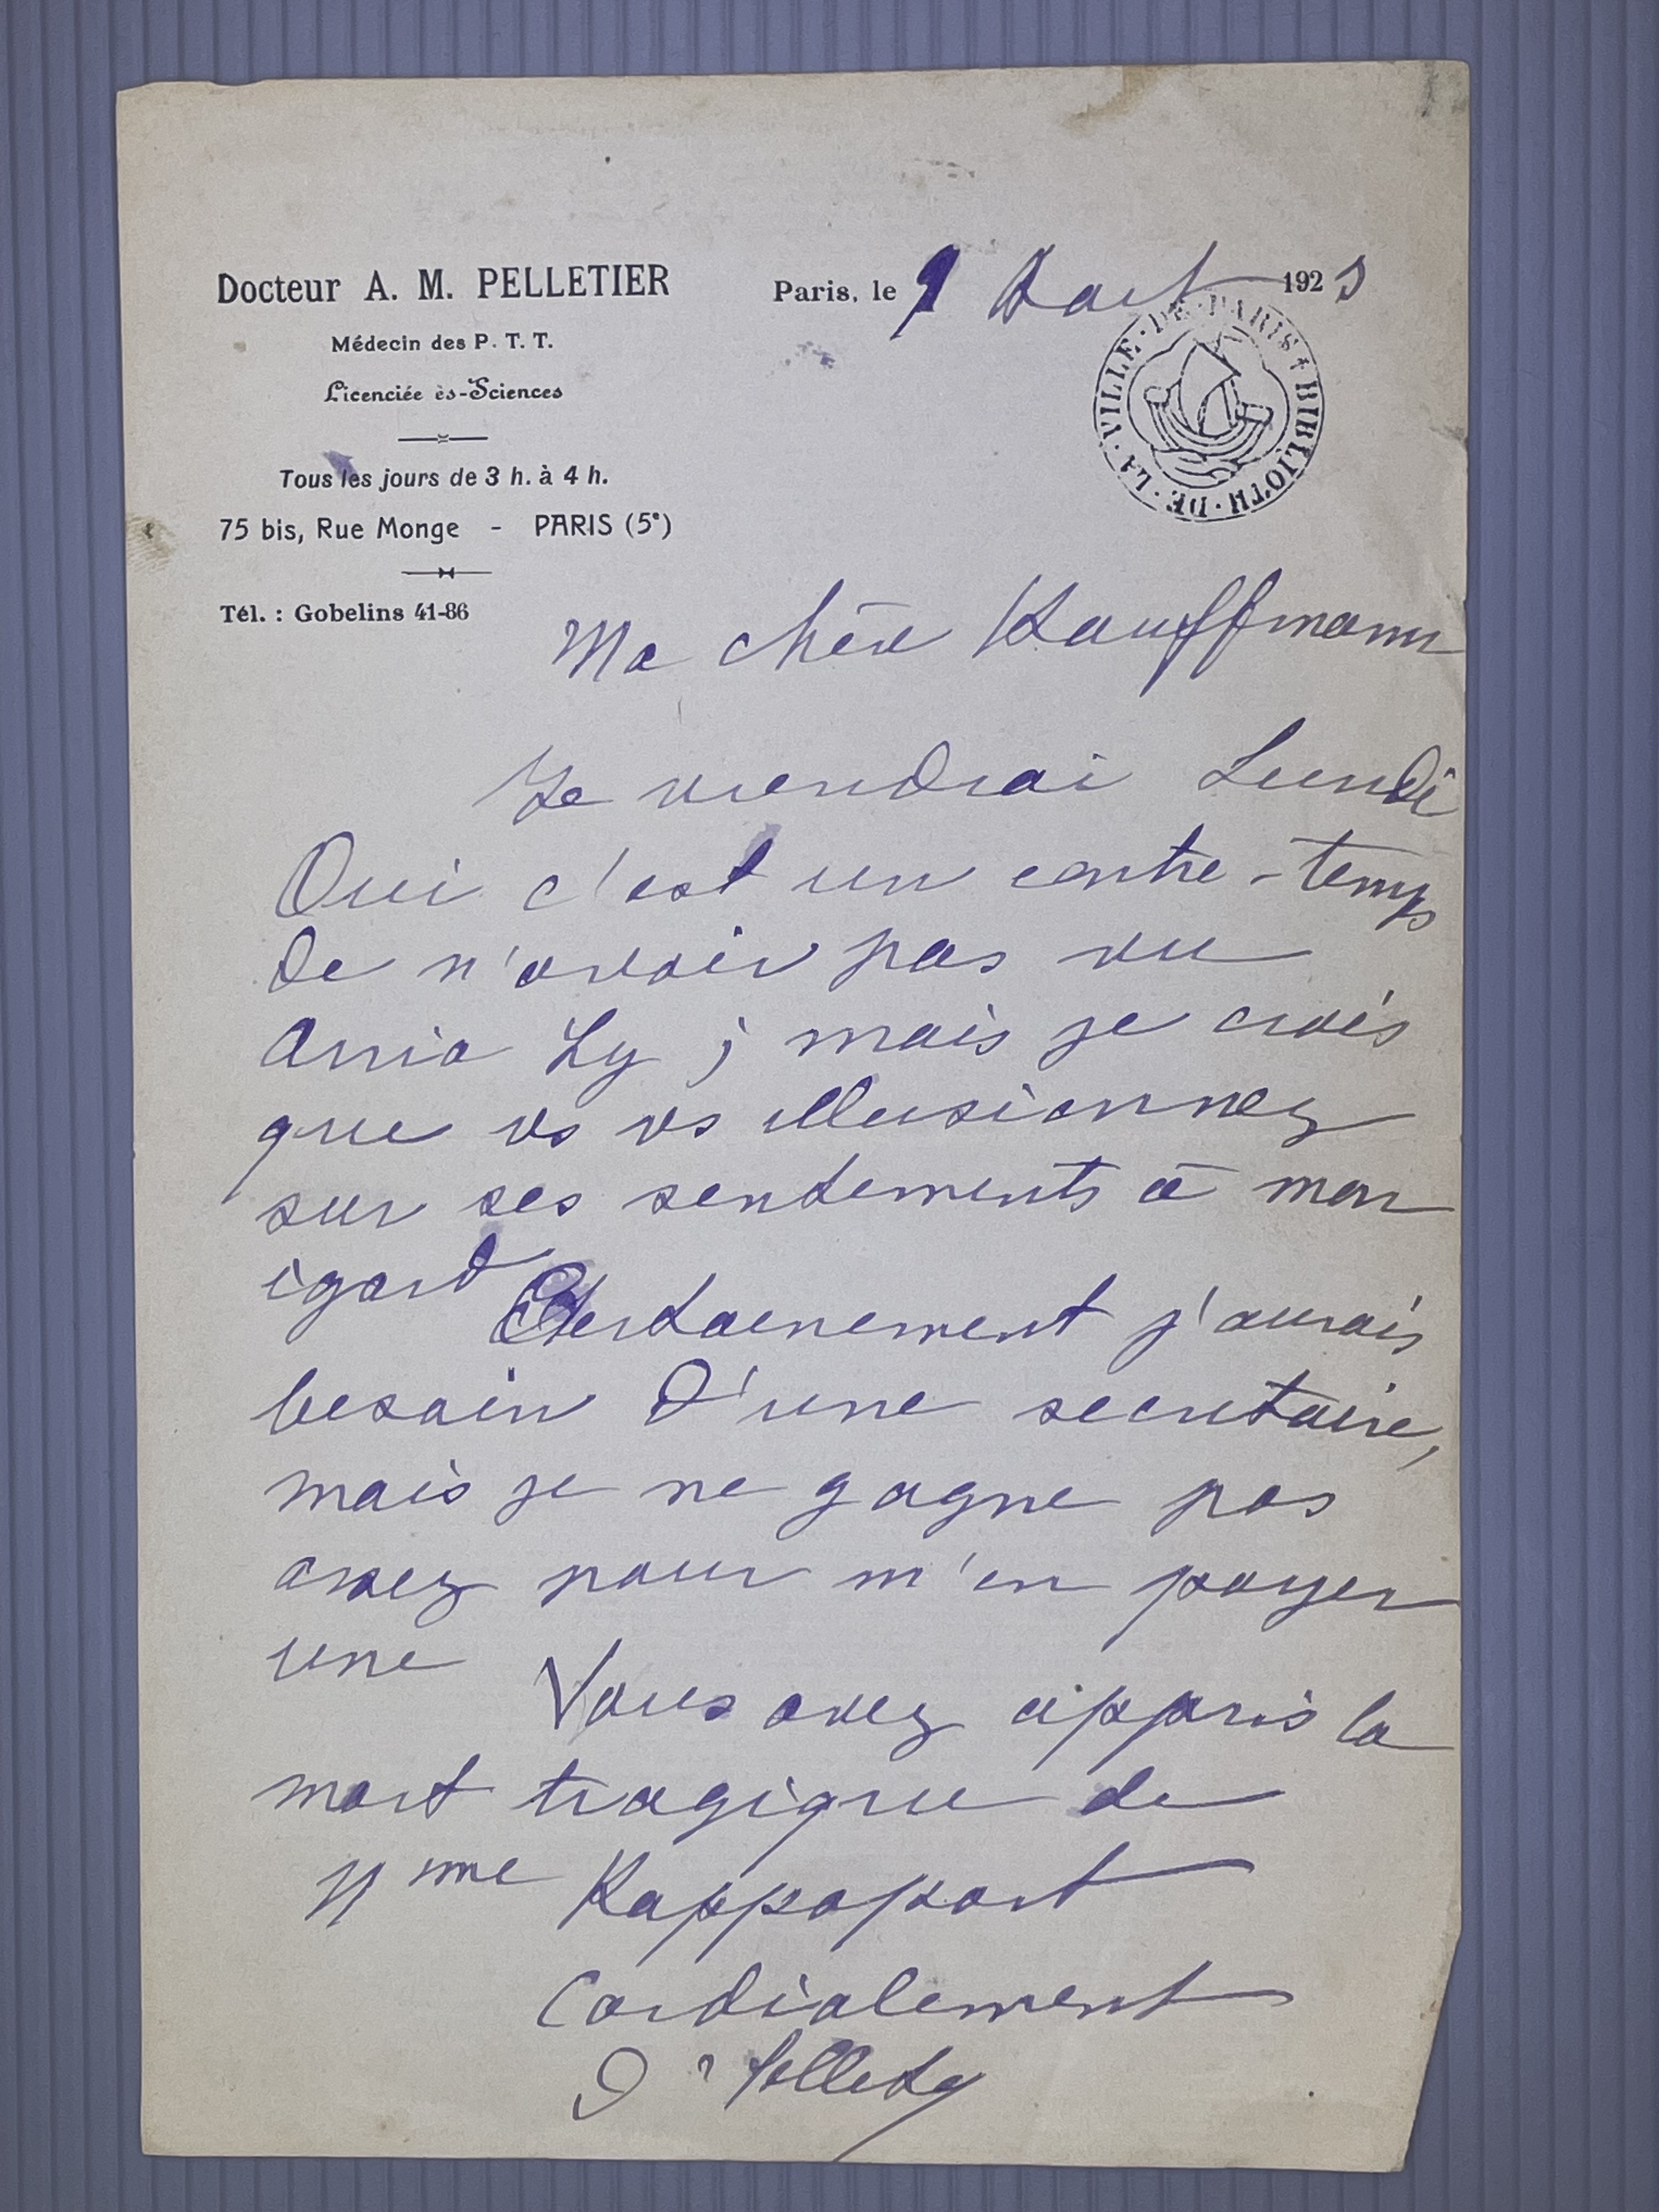 Docteur A. M. PELLETIER
Médecin des P. T. T.
Licenciée ès-Sciences
Tous les jours de 3 h. à 4 h.
75 bis, Rue Monge - PARIS (5e)
Tél. : Gobelins 41-86
Paris, le 9 192
BIBLIOTH · DE · LA · VILLE · DE · PARIS
Ma chère Kauffmann
Je viendrai Lundi
Oui c'est un contre-temps
de n'avoir pas vu
Arria Ly ; mais je crois
que vs vs illusionnez
sur ses sentiments à mon
égard
Certainement j'aurais
besoin d'une secretaire,
mais je ne gagne pas
assez pour m'en payer
une
Vous avez appris la
mort tragique de
Mme Rappoport
Cordialement
Dr Pelletier